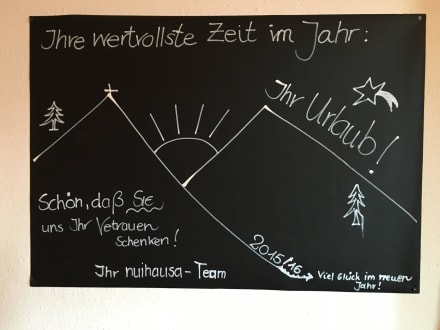 Ihre wertvollste Zeit im Jahr:
Ihr Urlaub!
Schön, daß Sie
uns Ihr Vetrauen
schenken!
2015/16
Ihr nuihausa-Team
Viel Glück im neuen
Jahr!